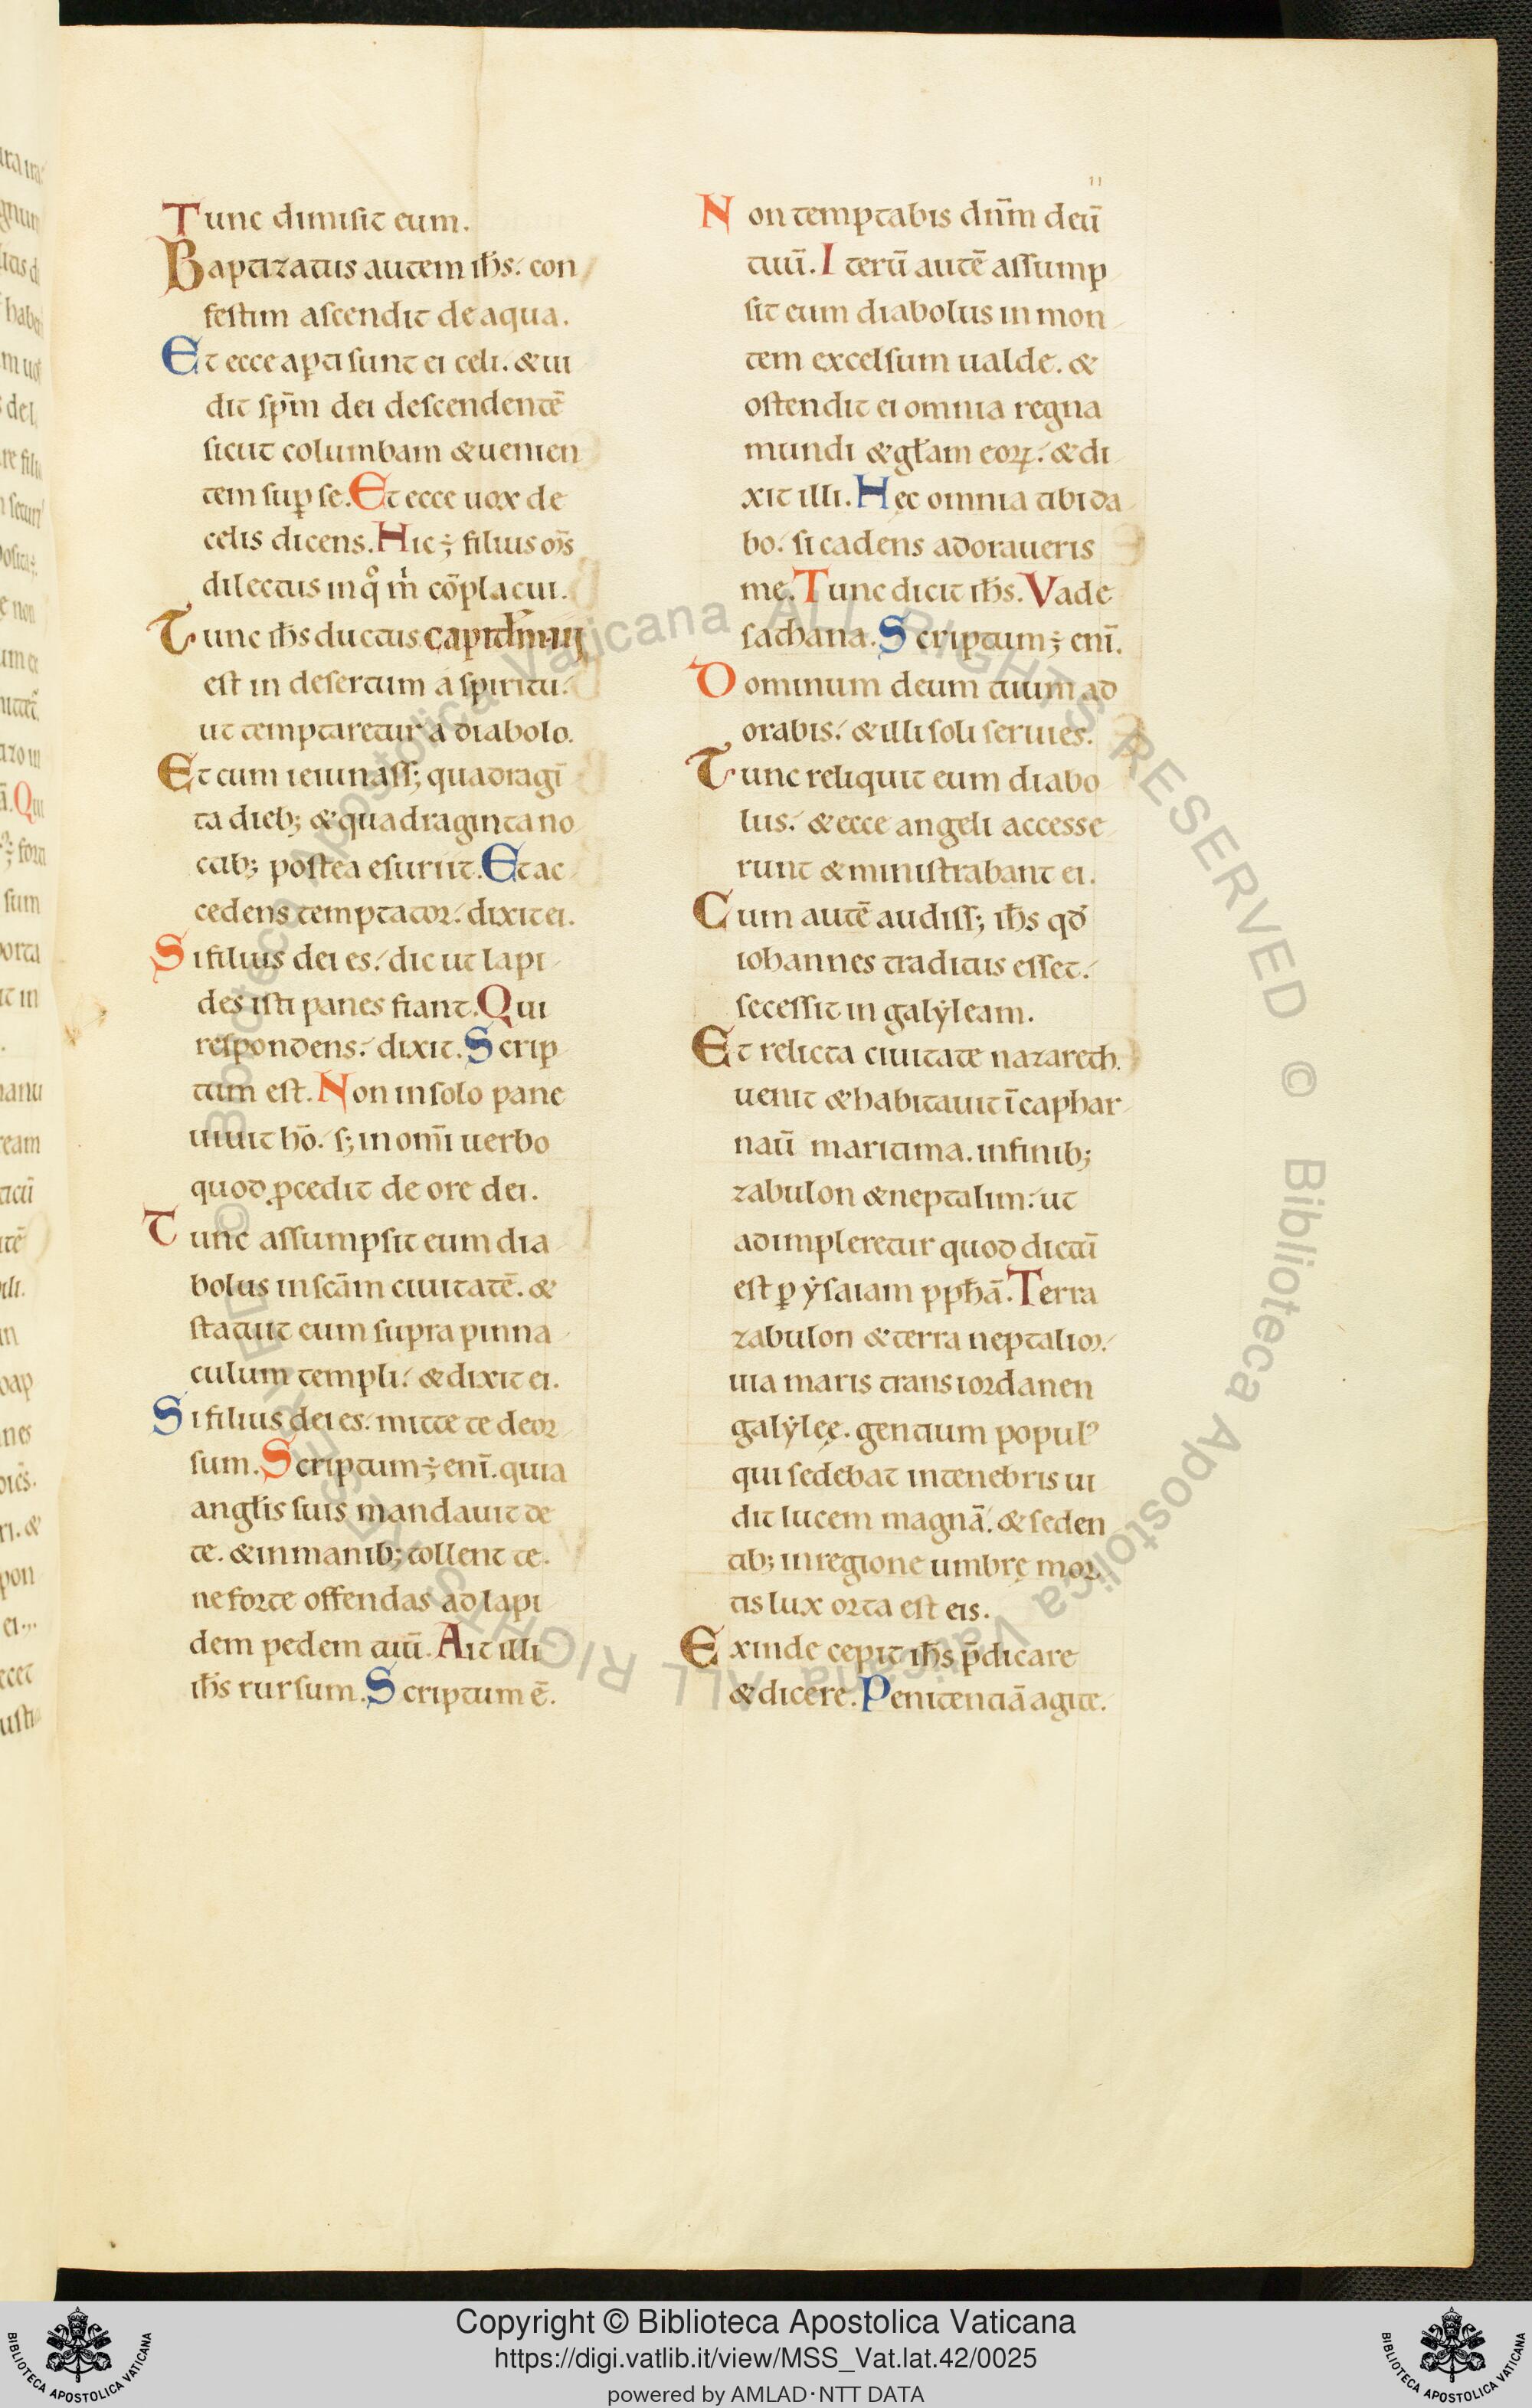 Tunc dimisit eum.
Baptizatus autem ih̅s. con
festim ascendit de aqua.
Et ecce ap̲ti sunt ei celi. & ui
dit sp̅m dei descendente̅
sicut columbam & uenien
tem sup̲ se. Et ecce uox de
celis dicens. Hic ÷ filius m̅s
dilectus in qͦ m̍ co̅placui.
Tunc ih̅s ductus capitl̅m. iiij
est in desertum a spiritu.
ut temptaretur a diabolo.
Et cum ieiunass; quadragi̅
ta dieb; & quadraginta no
ctib; postea esuriit. Et ac
cedens temptator. dixit ei.
Si filius dei es. dic ut lapi
des isti panes fiant. Qui
respondens. dixit. Scrip
tum est. Non in solo pane
uiuit ho̅. s; in omi̅ uerbo
quod ꝓcedit de ore dei.
Tunc assumpsit eum dia
bolus in sc̅am ciuitate̅. &
statuit eum supra pinna
culum templi. & dixit ei.
Si filius dei es. mitte te deor
sum. Scriptum ÷ eni̅. quia
angl̅is suis mandauit de
te. & in manib; tollent te.
ne forte offendas ad lapi
dem pedem tuu̅. Ait illi
ih̅s rursum. Scriptum e̅.
11
Non temptabis dn̅m deu̅
tuu̅. Iteru̅ aute̅ assump
sit eum diabolus in mon
tem excelsum ualde. &
ostendit ei omnia regna
mundi & gl̅am eoꝝ. & di
xit illi. Hęc omnia tibi da
bo. si cadens adoraueris
me. Tunc dicit ih̅s. Vade
sathana. Scriptum ÷ eni̅.
Dominum deum tuum ad
orabis. & illi soli seruies.
Tunc reliquit eum diabo
lus. & ecce angeli accesse
runt & ministrabant ei.
Cum aute̅ audiss; ih̅s qd̅
iohannes traditus esset.
secessit in galẏleam.
Et relicta ciuitate nazareth.
uenit & habitauit i̅ caphar
nau̅ maritima. in finib;
zabulon & neptalim. ut
adimpleretur quod dictu̅
est ꝑ ẏsaiam pph̅a̅. Terra
zabulon & terra neptalim.
uia maris trans iordanen
galẏlęę. gentium populꝰ
qui sedebat in tenebris ui
dit lucem magna̅. & seden
tib; in regione umbrę mor
tis lux orta est eis.
Exinde cepit ih̅s p̅dicare
& dicere. Penitentia̅ agite.
Copyright © Biblioteca Apostolica Vaticana
https://digi.vatlib.it/view/MSS_Vat.lat.42/0025
powered by AMLAD·NTT DATA
BIBLIOTECA APOSTOLICA VATICANA
BIBLIOTECA APOSTOLICA VATICANA
© Biblioteca Apostolica Vaticana ALL RIGHTS RESERVED © Biblioteca Apostolica Vaticana ALL RIGHTS RESERVED